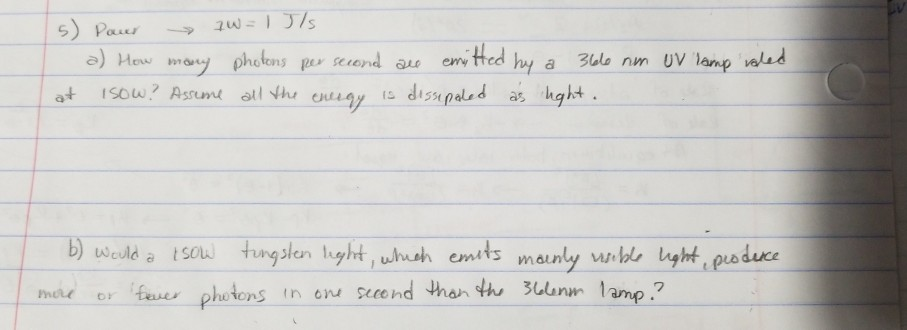 5) Power → 1W = 1 J/s
a) How many photons per second are emitted by a 366 nm UV lamp rated
at 150W? Assume all the energy is dissipated as light.
b) Would a 150W tungsten light, which emits mainly visible light, produce
more or fewer photons in one second than the 366nm lamp?